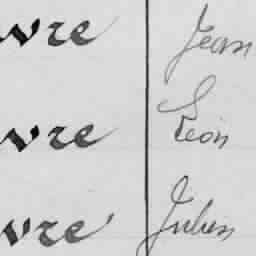 vre Jean
vre Léon
vre Julien